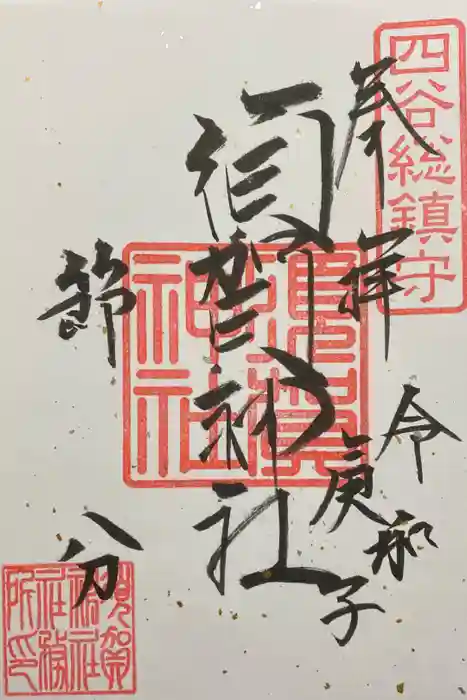 四谷総鎮守
奉拝
令和
庚子
須賀神社
節分
須賀神社
須賀神社社務所印